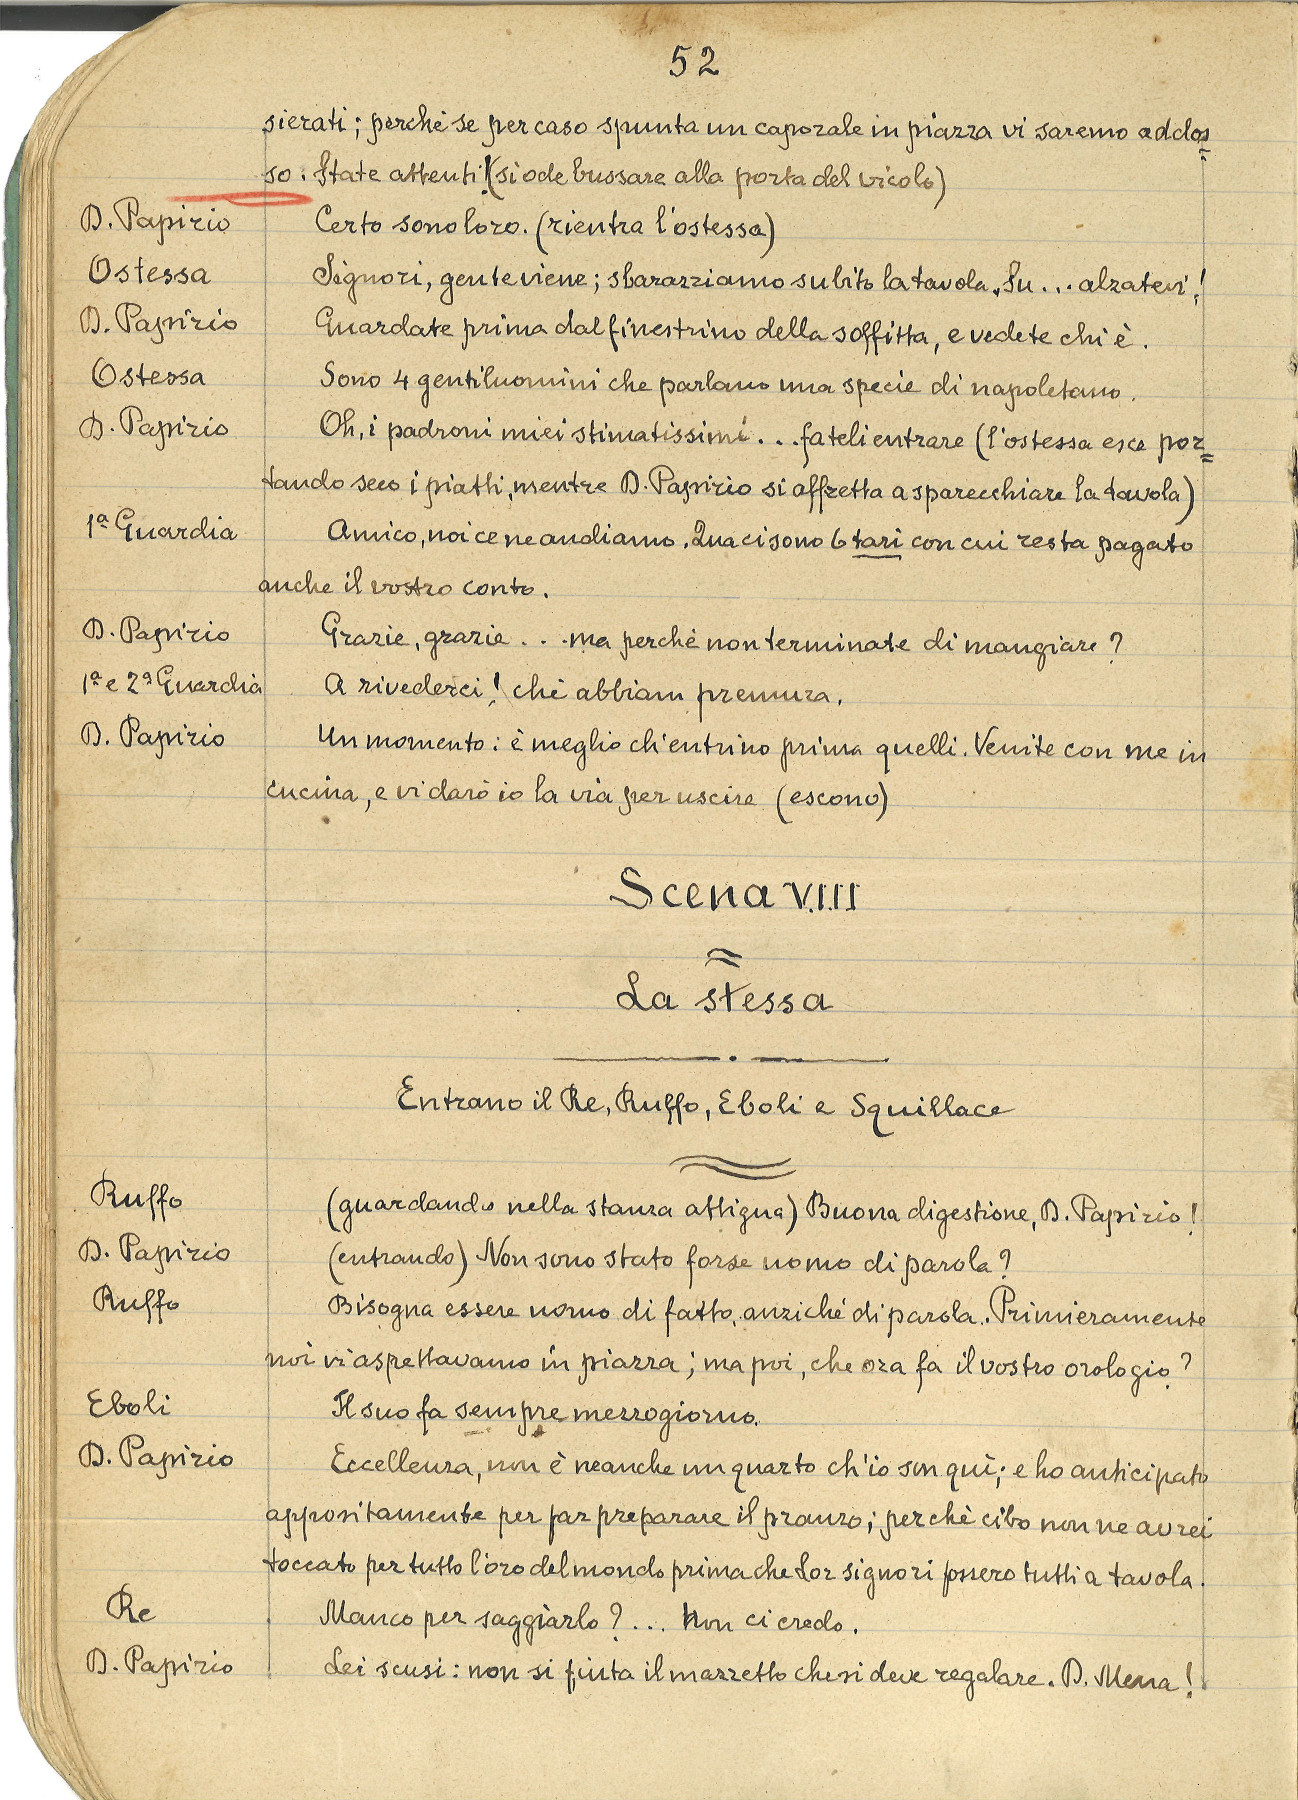 52
sierati; perchè se per caso spunta un caporale in piazza vi saremo addos=
so. State attenti! (si ode bussare alla porta del vicolo)
D. Papirio Certo sono loro. (rientra l'ostessa)
Ostessa Signori, gente viene; sbarazziamo subito la tavola. Su... alzatevi!
D. Papirio Guardate prima dal finestrino della soffitta, e vedete chi è.
Ostessa Sono 4 gentiluomini che parlano una specie di napoletano.
D. Papirio Oh, i padroni miei stimatissimi... fateli entrare (l'ostessa esce por=
tando seco i piatti, mentre D. Papirio si affretta a sparecchiare la tavola)
1ª Guardia Amico, noi ce ne andiamo. Qua ci sono 6 tari con cui resta pagato
anche il vostro conto.
D. Papirio Grazie, grazie... ma perchè non terminate di mangiare?
1ª e 2ª Guardia A rivederci! chè abbiam premura.
D. Papirio Un momento: è meglio ch'entrino prima quelli. Venite con me in
cucina, e vi darò io la via per uscire (escono)
Scena VIII
La stessa
Entrano il Re, Ruffo, Eboli e Squillace
Ruffo (guardando nella stanza attigua) Buona digestione, D. Papirio!
D. Papirio (entrando) Non sono stato forse uomo di parola?
Ruffo Bisogna essere uomo di fatto, anzichè di parola. Primieramente
noi vi aspettavamo in piazza; ma poi, che ora fa il vostro orologio?
Eboli Il suo fa sempre mezzogiorno.
D. Papirio Eccellenza, non è neanche un quarto ch'io son quì; e ho anticipato
appositamente per far preparare il pranzo; perchè cibo non ne avrei
toccato per tutto l'oro del mondo prima che Lor signori fossero tutti a tavola.
Re Manco per saggiarlo?... Non ci credo.
D. Papirio Lei scusi: non si fiuta il mazzetto che si deve regalare. D. Mena!